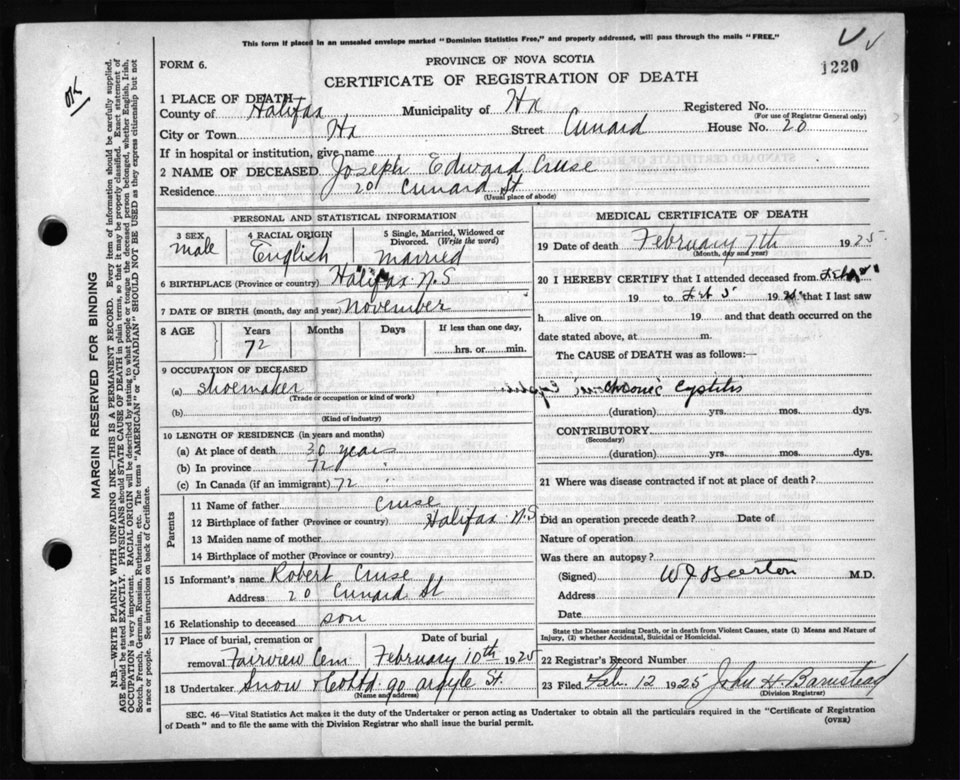 This form if placed in an unsealed envelope marked "Dominion Statistics Free," and properly addressed, will pass through the mails "FREE."
FORM 6.
PROVINCE OF NOVA SCOTIA
1220
CERTIFICATE OF REGISTRATION OF DEATH
1 PLACE OF DEATH
County of Halifax Municipality of Hx Registered No.
(For use of Registrar General only)
City or Town Hx Street Cunard House No. 20
If in hospital or institution, give name
2 NAME OF DECEASED Joseph Edward Cruse
Residence 20 Cunard St
(Usual place of abode)
PERSONAL AND STATISTICAL INFORMATION
3 SEX male
4 RACIAL ORIGIN English
5 Single, Married, Widowed or Divorced. (Write the word) married
6 BIRTHPLACE (Province or country) Halifax N.S
7 DATE OF BIRTH (month, day and year) November
8 AGE Years Months Days If less than one day,
72 hrs. or min.
9 OCCUPATION OF DECEASED
(a) Shoemaker
(Trade or occupation or kind of work)
(b)
(Kind of industry)
10 LENGTH OF RESIDENCE (in years and months)
(a) At place of death 30 years
(b) In province 72 "
(c) In Canada (if an immigrant) 72 "
Parents
11 Name of father Cruse
12 Birthplace of father (Province or country) Halifax N.S
13 Maiden name of mother
14 Birthplace of mother (Province or country)
15 Informant's name Robert Cruse
Address 20 Cunard St
16 Relationship to deceased son
17 Place of burial, cremation or Date of burial
removal Fairview Cem February 10th 1925
18 Undertaker Snow & Co Ltd 90 Argyle St.
(Name and address)
MEDICAL CERTIFICATE OF DEATH
19 Date of death February 7th 1925
(Month, day and year)
20 I HEREBY CERTIFY that I attended deceased from
19 to Feb 5 19 that I last saw
h alive on 19 and that death occurred on the
date stated above, at m.
The CAUSE of DEATH was as follows:—
Chronic Cystitis
(duration) yrs. mos. dys.
CONTRIBUTORY
(Secondary)
(duration) yrs. mos. dys.
21 Where was disease contracted if not at place of death?
Did an operation precede death? Date of
Nature of operation
Was there an autopsy?
(Signed) M.D.
Address
Date
State the Disease causing Death, or in death from Violent Causes, state (1) Means and Nature of
Injury, (2) whether Accidental, Suicidal or Homicidal.
22 Registrar's Record Number
23 Filed Feb. 12 1925 John H. Barnstead
(Division Registrar)
SEC. 46—Vital Statistics Act makes it the duty of the Undertaker or person acting as Undertaker to obtain all the particulars required in the "Certificate of Registration
of Death" and to file the same with the Division Registrar who shall issue the burial permit.
(OVER)
MARGIN RESERVED FOR BINDING
N.B.—WRITE PLAINLY WITH UNFADING INK—THIS IS A PERMANENT RECORD. Every item of information should be carefully supplied.
AGE should be stated EXACTLY. PHYSICIANS should STATE CAUSE OF DEATH in plain terms, so that it may be properly classified. Exact statement of
OCCUPATION is very important. RACIAL ORIGIN will be described by stating to what people or tongue the deceased person belonged, whether English, Irish,
Scotch, French, German, Russian, Ruthenian, etc. The terms "AMERICAN" or "CANADIAN" SHOULD NOT BE USED as they express citizenship but not
a race or people. See instructions on back of Certificate.